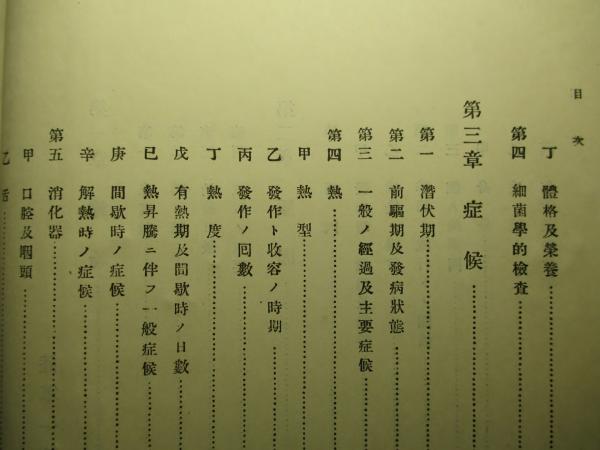 目次
丁 體格及榮養
第四 細菌學的檢査
第三章 症候
第一 潛伏期
第二 前驅期及發病狀態
第三 一般ノ經過及主要症候
第四 熱
甲 熱型
乙 發作ト收容ノ時期
丙 發作ノ回數
丁 熱度
戊 有熱期及間歇時ノ日數
巳 熱昇騰ニ伴フ一般症候
庚 間歇時ノ症候
辛 解熱時ノ症候
第五 消化器
甲 口腔及咽頭
乙 舌